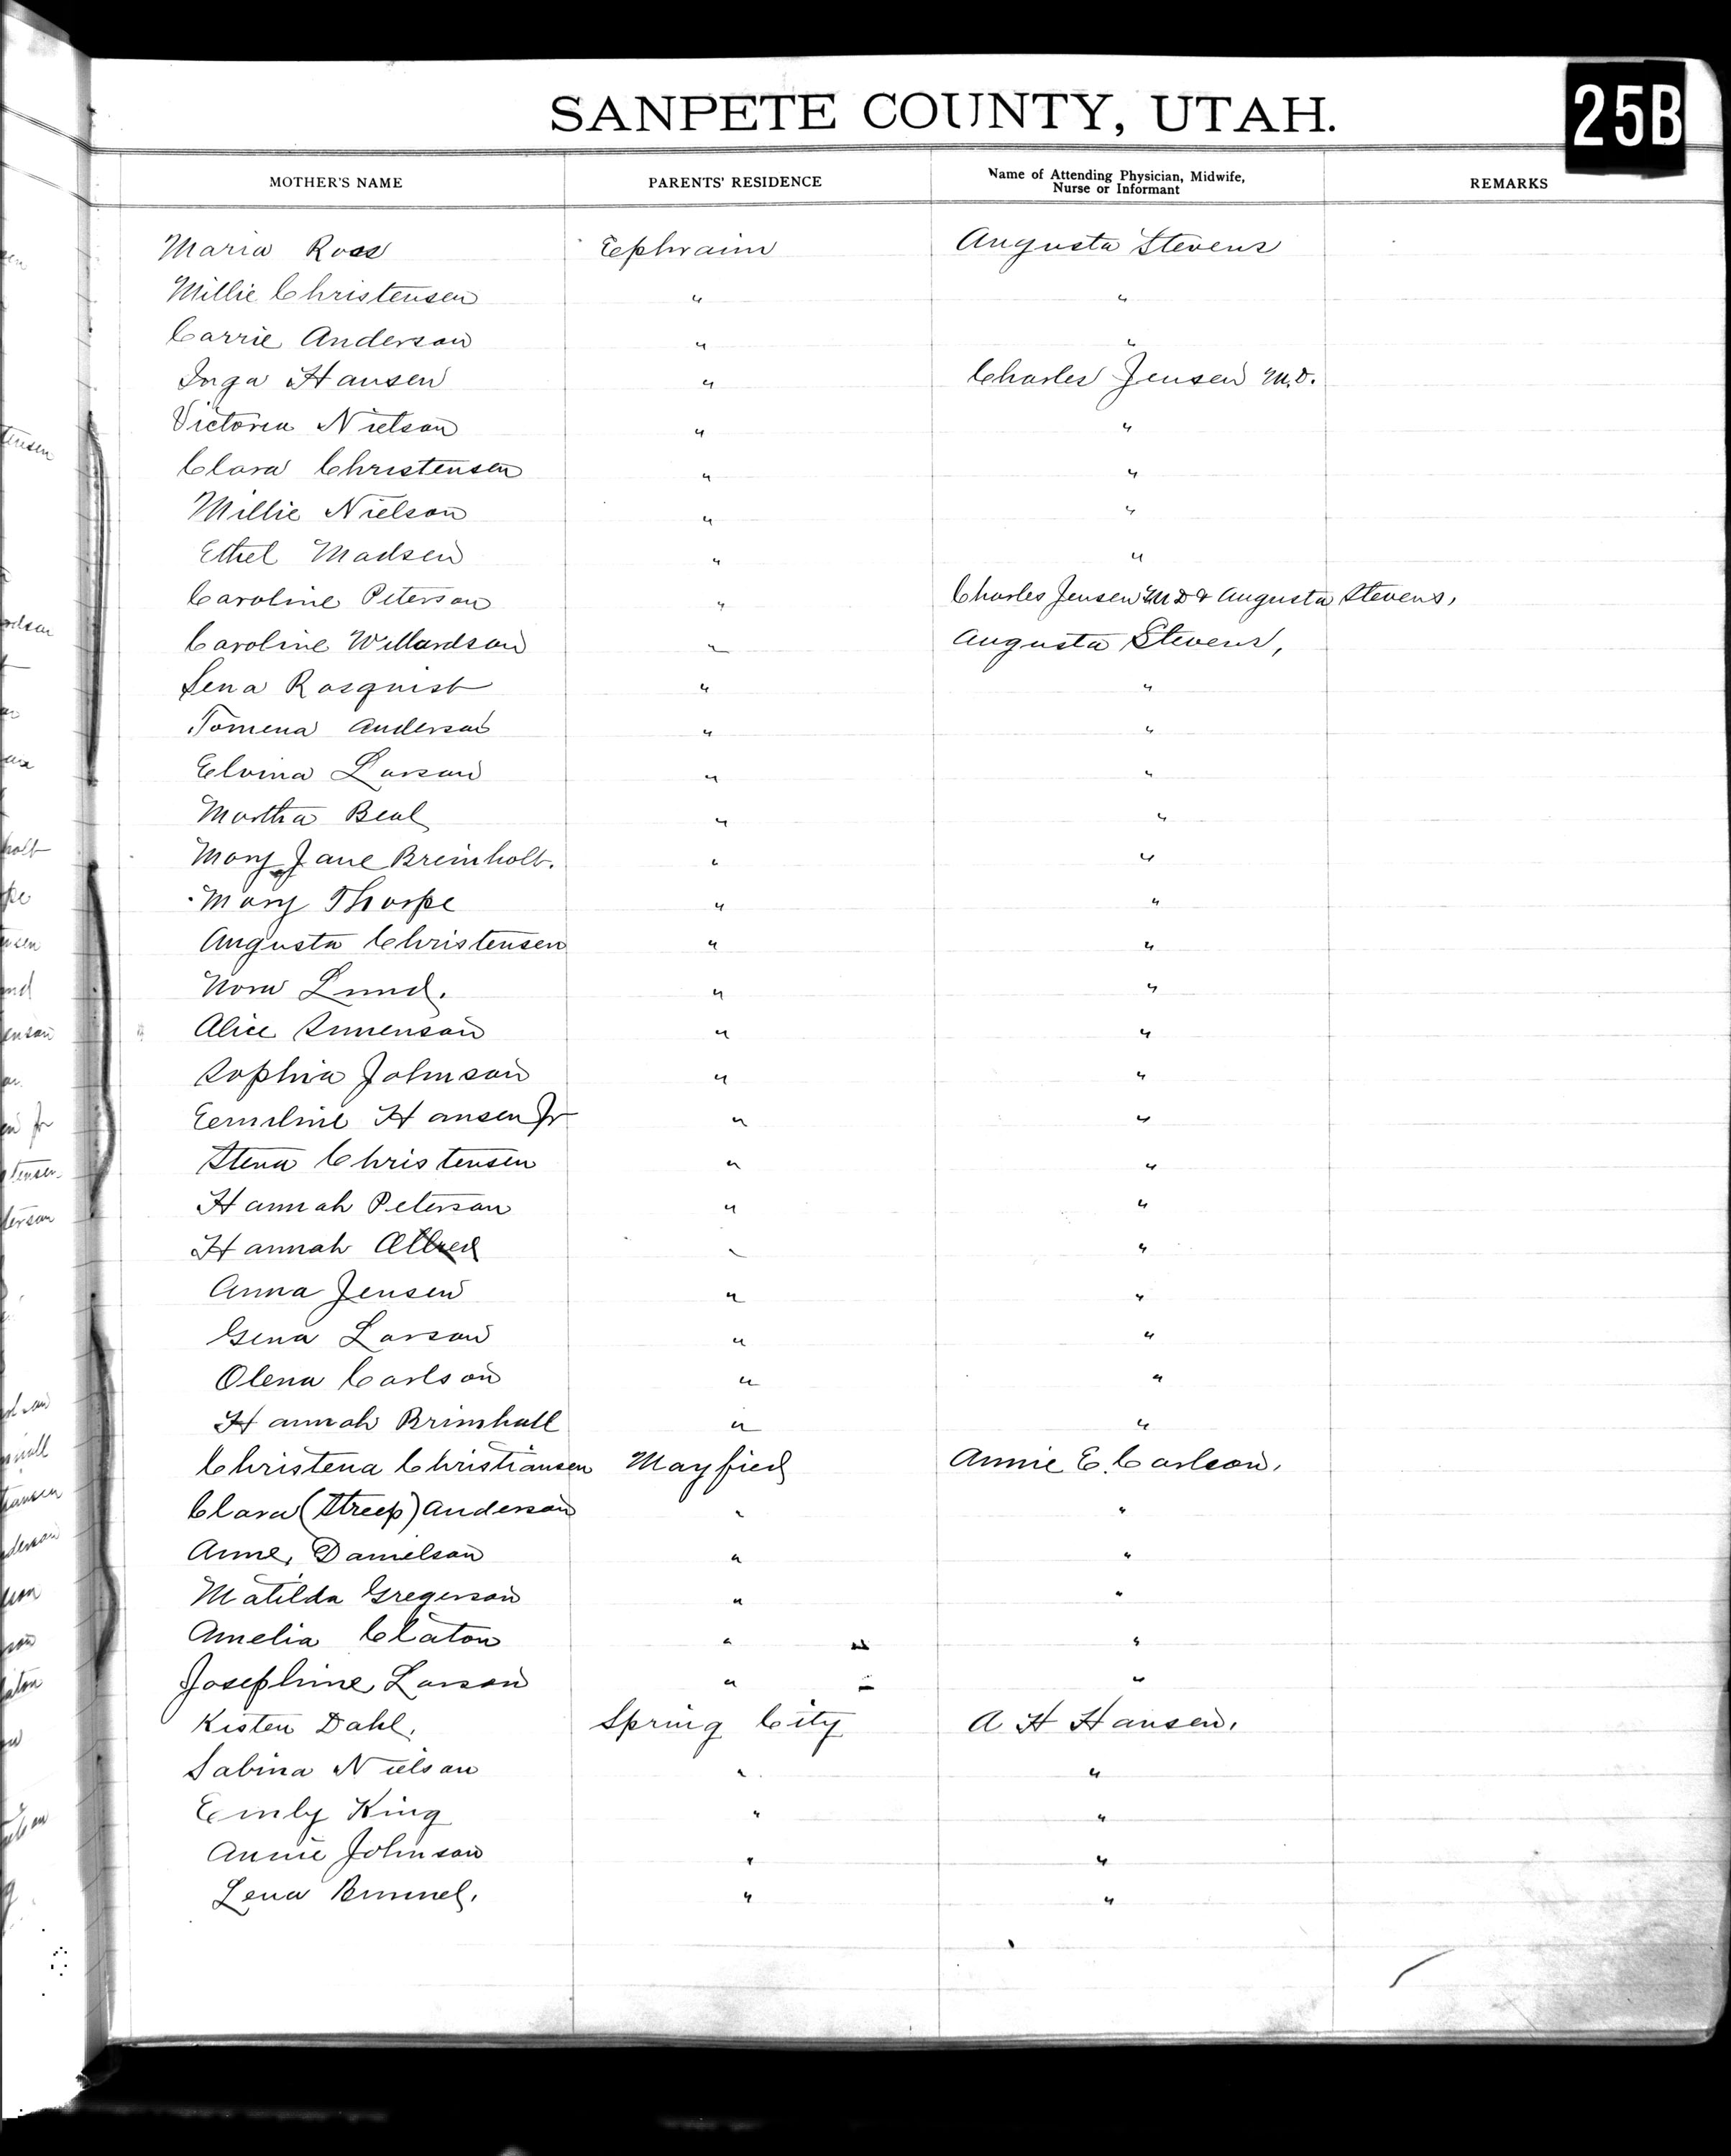 SANPETE COUNTY, UTAH.
25B
MOTHER'S NAME PARENTS' RESIDENCE Name of Attending Physician, Midwife, Nurse or Informant REMARKS
Maria Ross Ephraim Augusta Stevens
Millie Christensen " "
Carrie Anderson " "
Inga Hansen " Charles Jensen M.D.
Victoria Nielson " "
Clara Christensen " "
Millie Nielson " "
Ethel Madsen " "
Caroline Peterson " Charles Jensen M D & Augusta Stevens,
Caroline Willardson " Augusta Stevens,
Lena Rosquist " "
Tomena Anderson " "
Elvina Larson " "
Martha Beal " "
Mary Jane Breinholt. " "
Mary Thorpe " "
Augusta Christensen " "
Nora Lund. " "
Alice " "
Sophia Johnson " "
Hansen Jr " "
Stena Christensen " "
Hannah Peterson " "
Hannah Allred " "
Anna Jensen " "
Gena Larson " "
Olena Carlson " "
Hannah Brimhall " "
Christena Christiansen Mayfield Annie E. Carlson,
Clara (Streep) Anderson " "
Anne, Danielson " "
Matilda Gregerson " "
Amelia Claton " "
Josephine Larson " "
Kisten Dahl, Spring City A H Hansen,
Sabina Nielson " "
Emily King " "
Annie Johnson " "
Lena " "